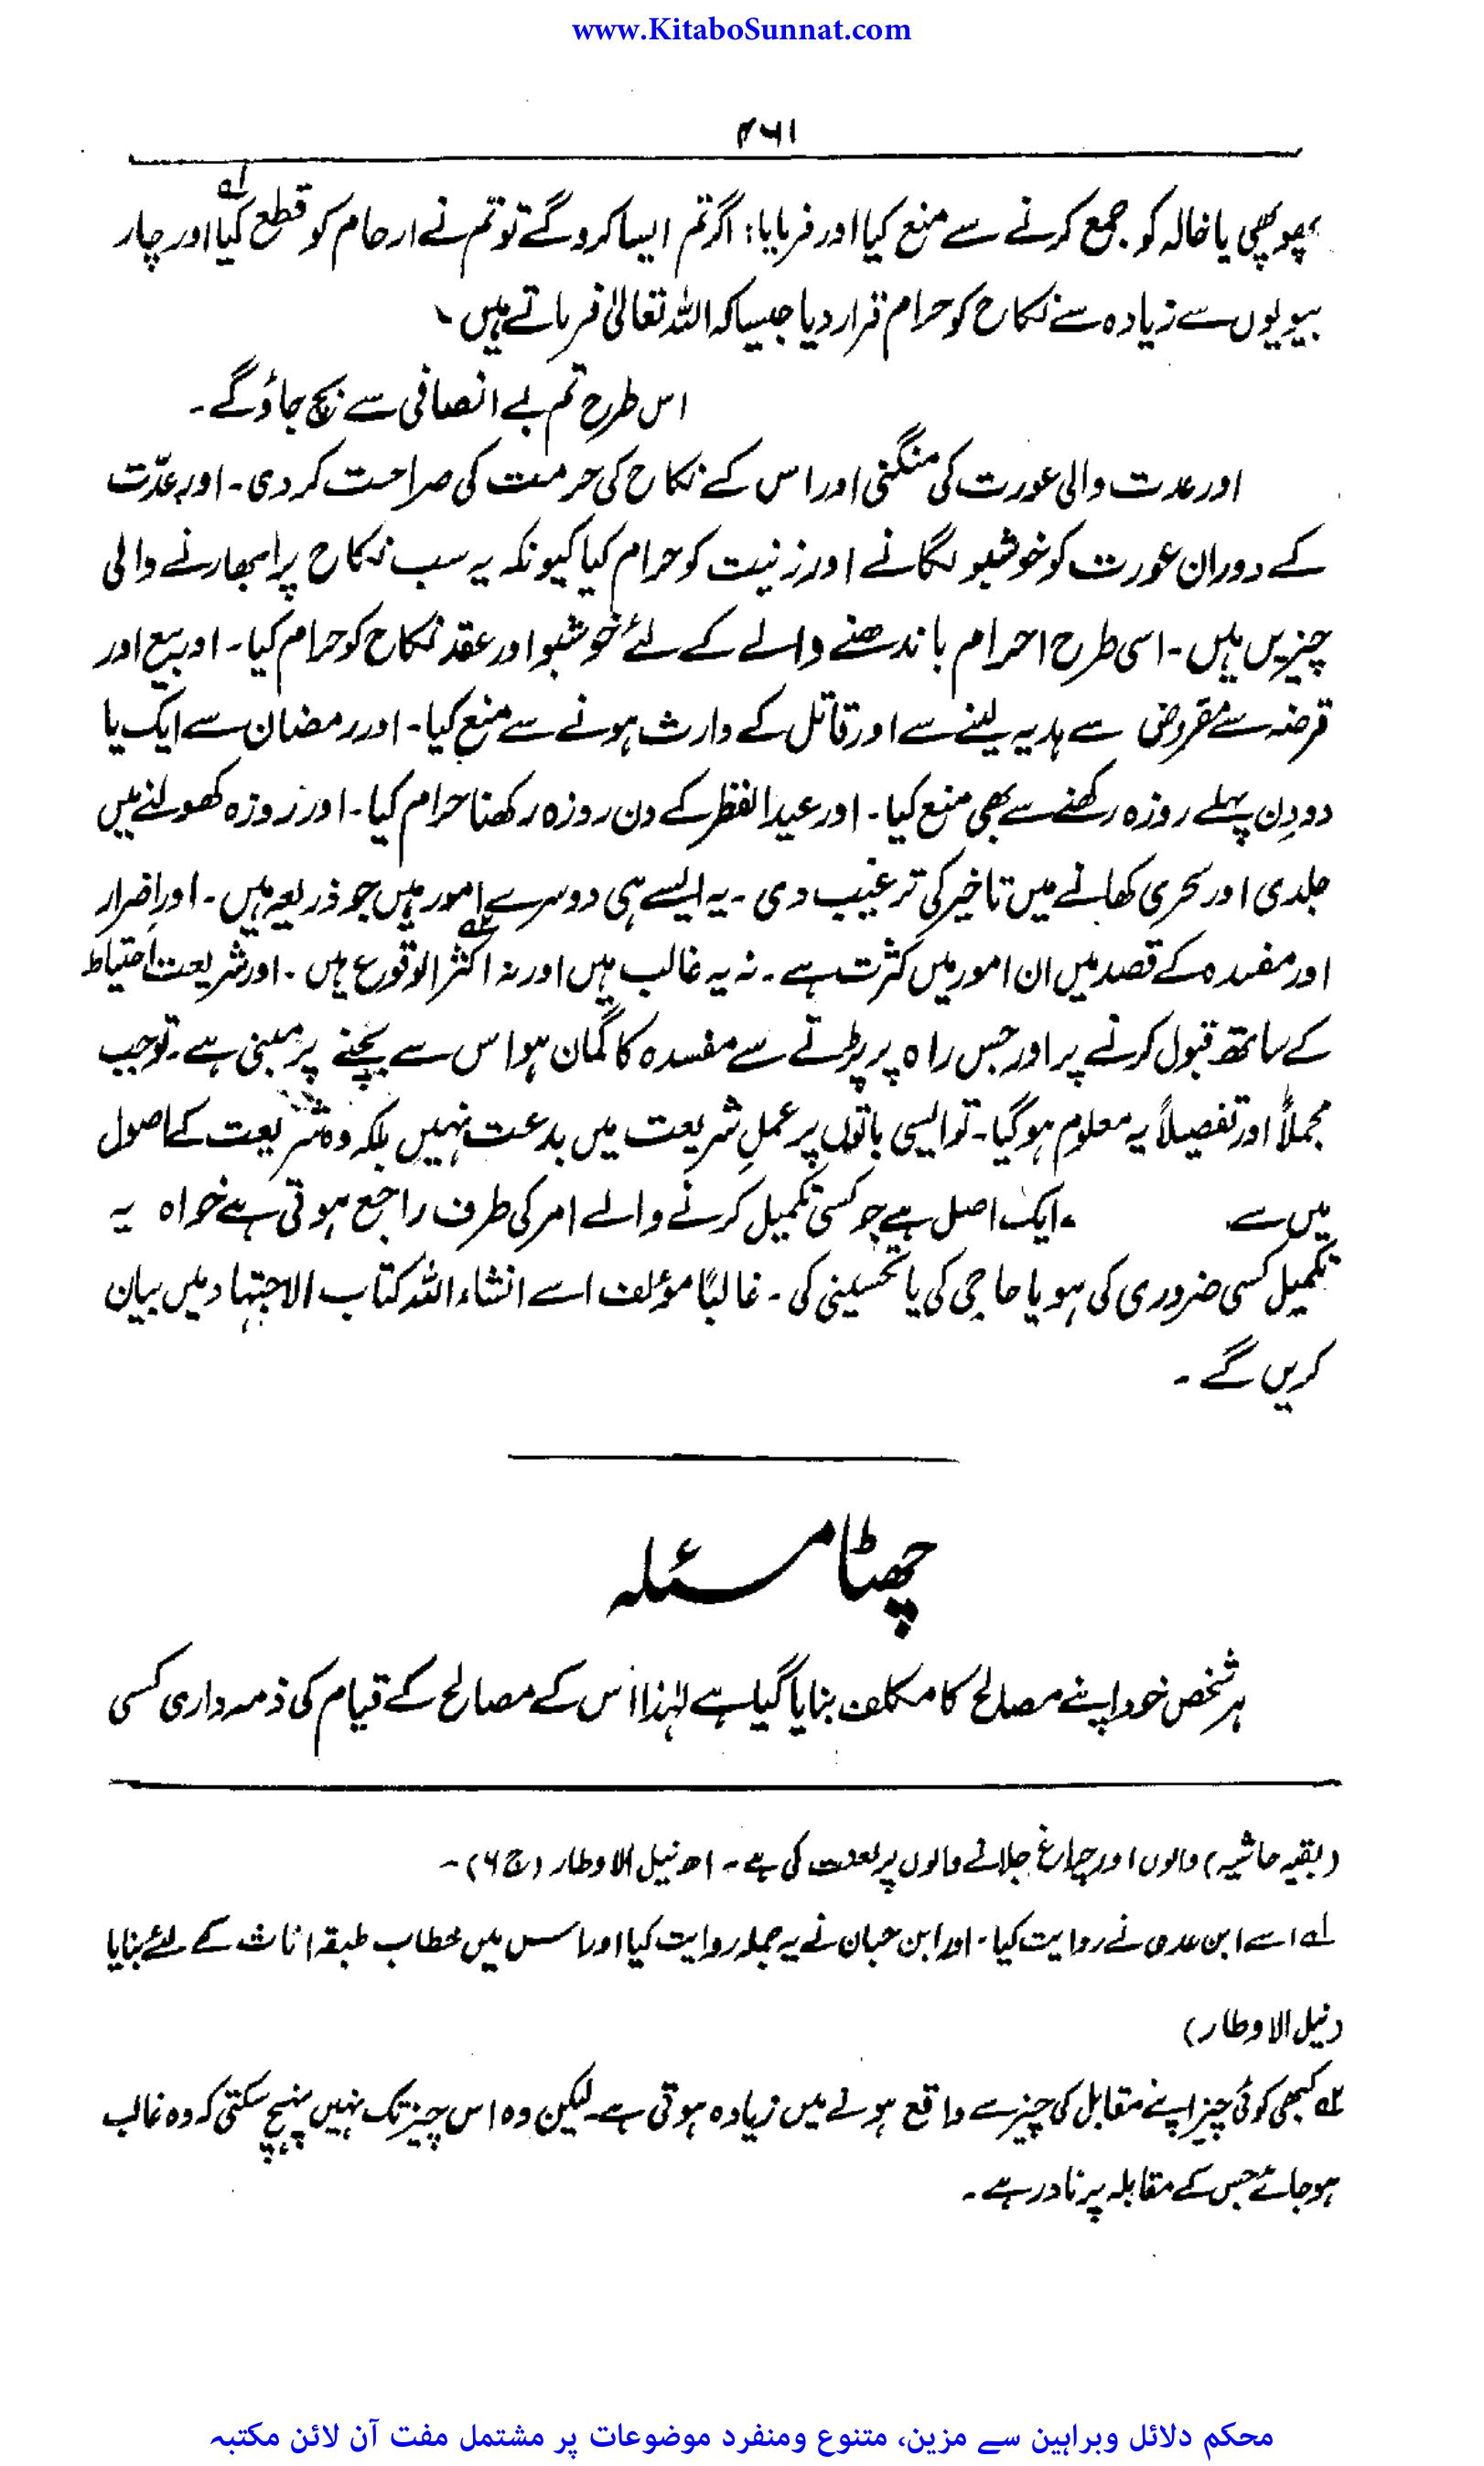 www.KitaboSunnat.com
۴۶۱
پھوپھی یا خالہ کو جمع کرنے سے منع کیا اور فرمایا: اگر تم ایسا کرو گے تو تم نے ارحام کو قطع کیا۱ اور چار
بیویوں سے زیادہ سے نکاح کو حرام قرار دیا جیسا کہ اللہ تعالیٰ فرماتے ہیں
اس طرح تم بے انصافی سے بچ جاؤ گے۔
اور عدت والی عورت کی منگنی اور اس کے نکاح کی حرمت کی صراحت کر دی۔ اور عدّت
کے دوران عورت کو خوشبو لگانے اور زینت کو حرام کیا کیونکہ یہ سب نکاح پر ابھارنے والی
چیزیں ہیں۔ اسی طرح احرام باندھنے والے کے لئے خوشبو اور عقد نکاح کو حرام کیا۔ اور بیع اور
قرضہ سے مقروض سے ہدیہ لینے سے اور قاتل کے وارث ہونے سے منع کیا۔ اور رمضان سے ایک یا
دو دِن پہلے روزہ رکھنے سے بھی منع کیا۔ اور عید الفطر کے دن روزہ رکھنا حرام کیا۔ اور روزہ کھولنے میں
جلدی اور سحری کھانے میں تاخیر کی ترغیب دی۔ یہ ایسے ہی دوسرے امور ہیں جو ذریعہ ہیں۔ اور اِضرار
اور مفسدہ کے قصد میں ان امور میں کثرت ہے۔ نہ یہ غالب ہیں اور نہ اکثر الوقوع۲ ہیں۔ اور شریعت احتیاط
کے ساتھ قبول کرنے پر اور جس راہ پر پڑنے سے مفسدہ کا گمان ہو اس سے بچنے پر مبنی ہے۔ تو جب
مجملاً اور تفصیلاً یہ معلوم ہو گیا۔ تو ایسی باتوں پر عملِ شریعت میں بدعت نہیں بلکہ وہ شریعت کے اصول
میں سے ایک اصل ہے جو کسی تکمیل کرنے والے امر کی طرف راجع ہوتی ہے خواہ یہ
تکمیل کسی ضروری کی ہو یا حاجی کی یا تحسینی کی۔ غالباً مؤلف اسے انشاء اللہ کتاب الاجتہاد میں بیان
کریں گے۔
چھٹا مسئلہ
ہر شخص خود اپنے مصالح کا مکلف بنایا گیا ہے لہٰذا اُس کے مصالح کے قیام کی ذمہ داری کسی
(بقیہ حاشیہ) والوں اور چراغ جلانے والوں پر لعنت کی ہے۔ اھ نیل الاوطار (ج ۶)۔
۱ اسے ابن عدی نے روایت کیا۔ اور ابن حبان نے یہ جملہ روایت کیا اور اس میں خطاب طبقہ اناث کے لئے بنایا
(نیل الاوطار)
۲ کبھی کوئی چیز اپنے مقابل کی چیز سے واقع ہونے میں زیادہ ہوتی ہے۔ لیکن وہ اس چیز تک نہیں پہنچ سکتی کہ وہ غالب
ہو جائے جس کے مقابلہ پر نادر ہے۔
محکم دلائل وبراہین سے مزین، متنوع ومنفرد موضوعات پر مشتمل مفت آن لائن مکتبہ